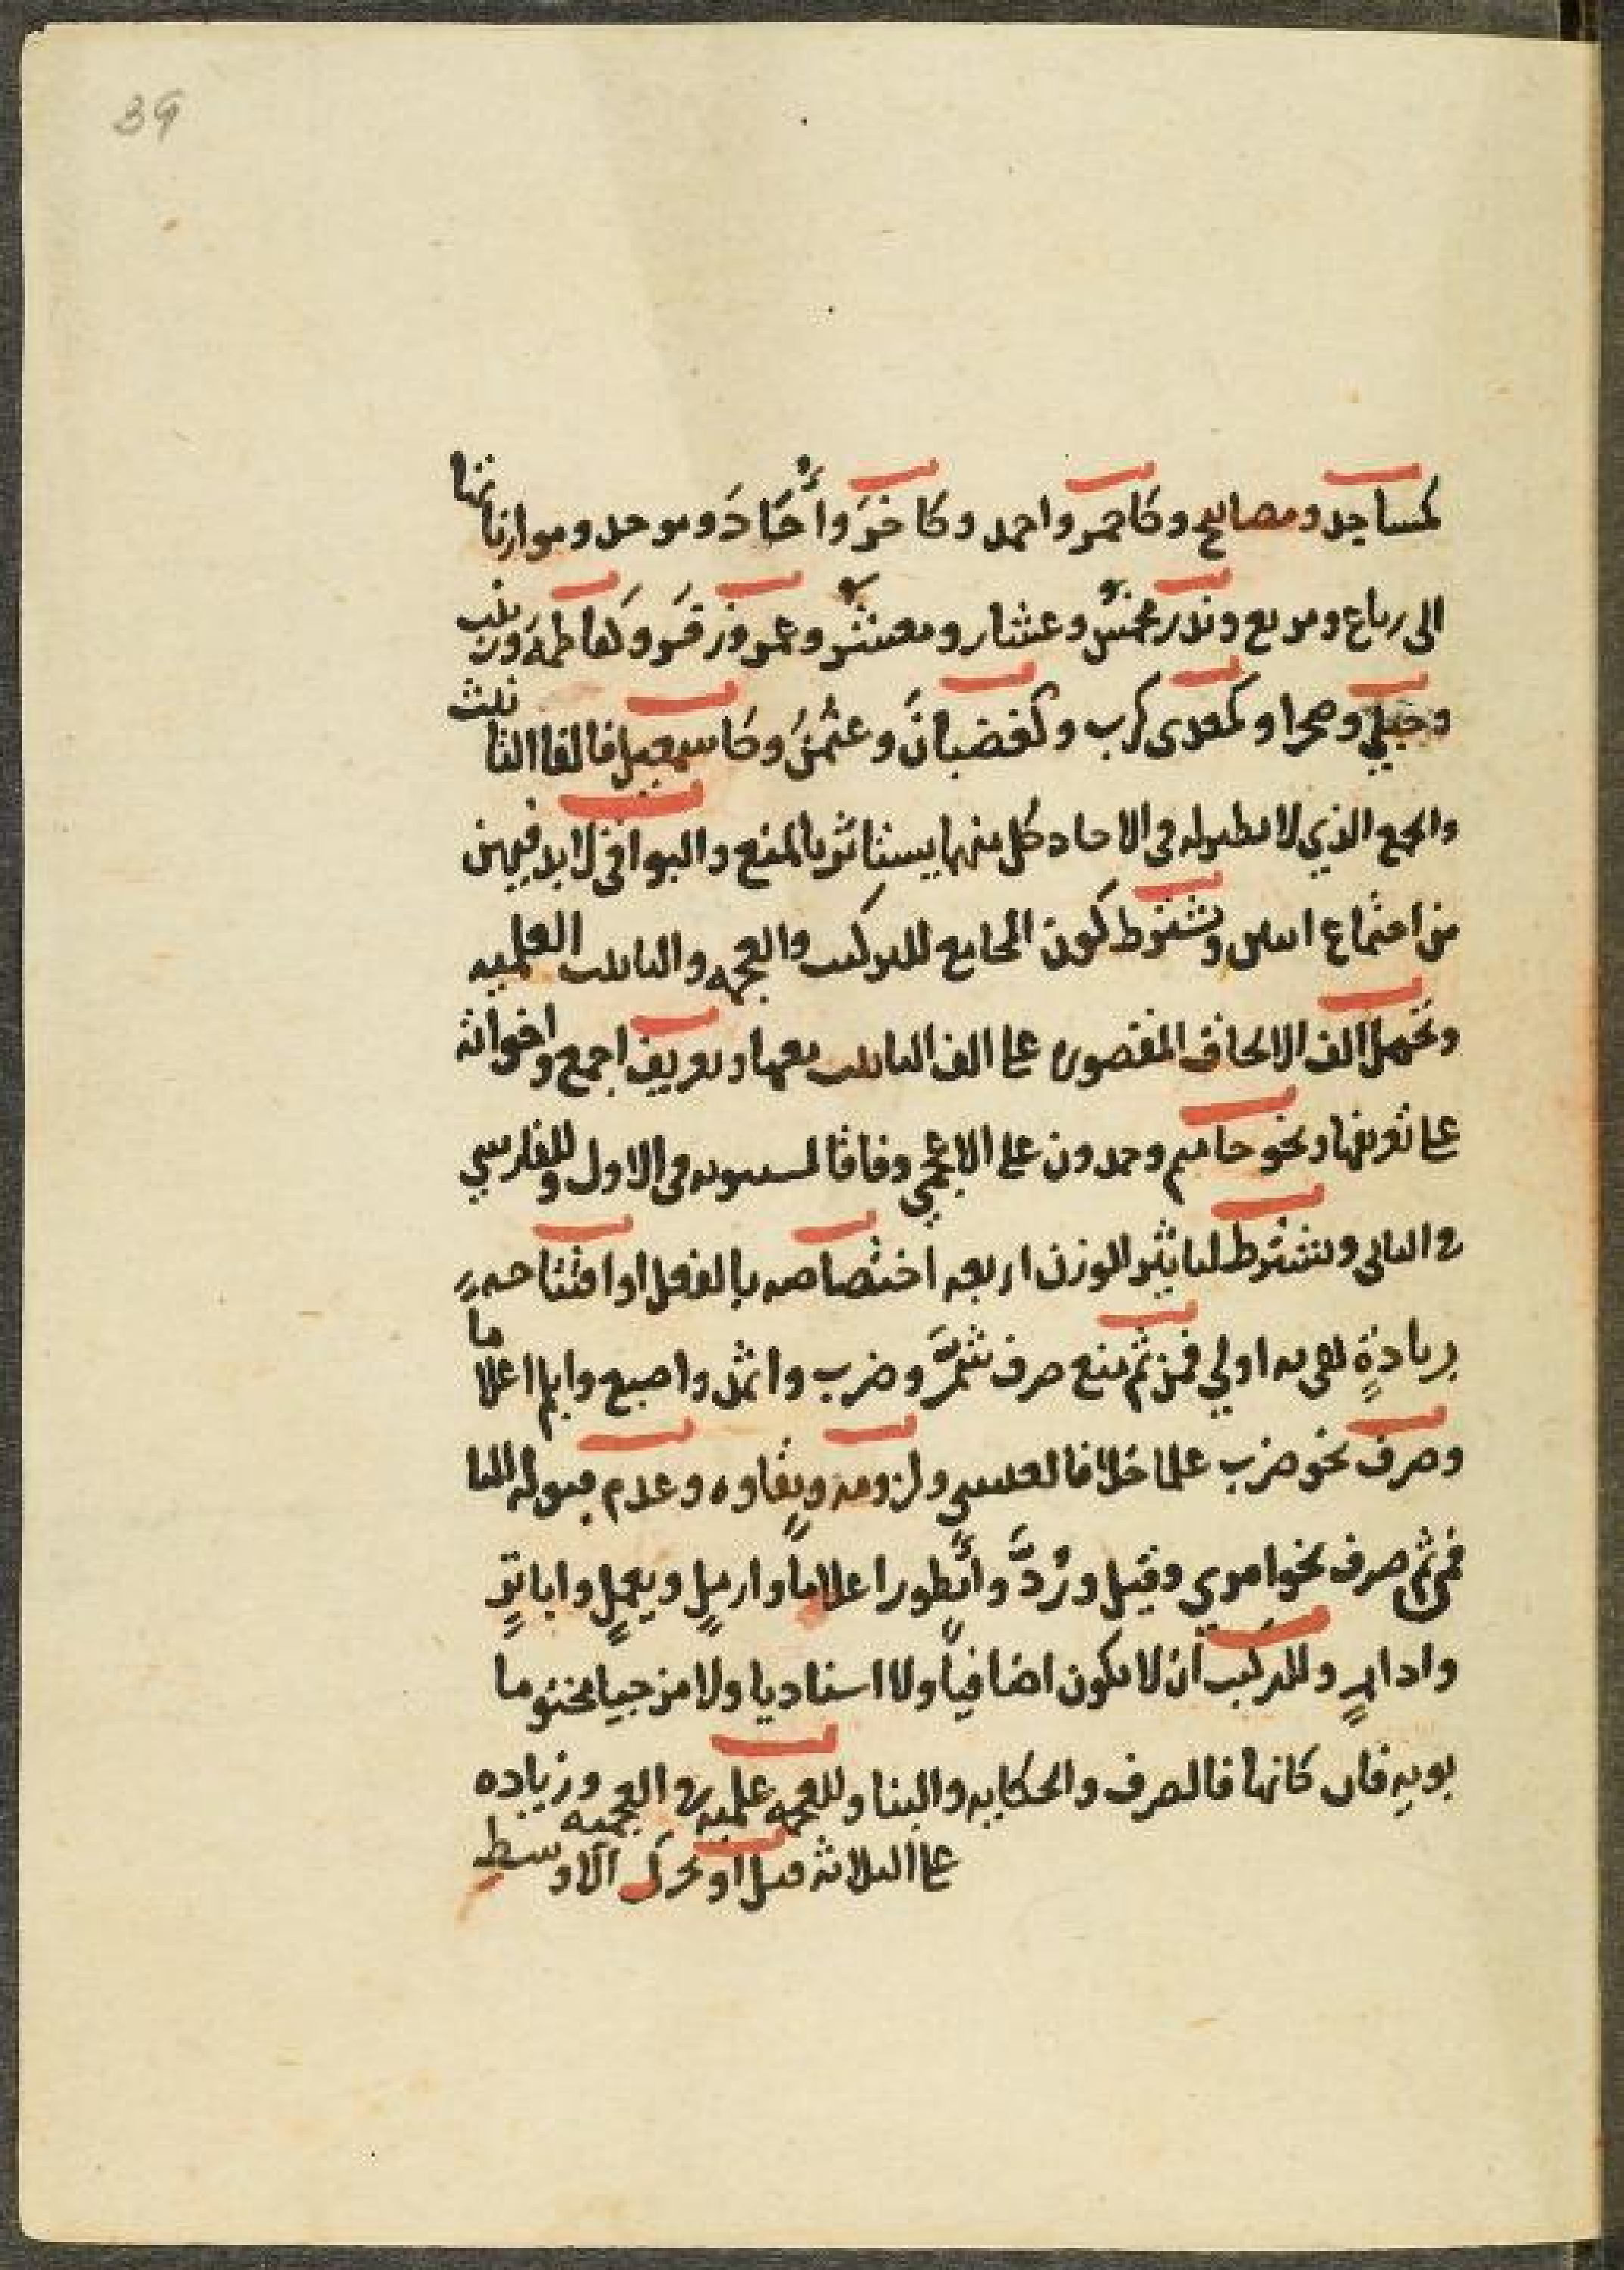 39
كمساجد ومصابيح وكاحمر واحمد وكاخَرَ وأُحَادَ وموحد وموازناتها
الى رباع ومربع وندر مخمس وعشار ومعشر وعمر وزفر وكفاطمة وزينب
وحبلي وصحرا وكمعدى كرب وكغضبانَ وعثمنَ وكاسمعيل فالفا التانيث
والجمع الذي لا نظير له في الاحاد كل منهما يستاثر بالمنع والبواقي لا بد فيهن
من اجتماع اثنين ويشترط كون المجامع للتركيب والعجمه والتانيث العلميه
وتحمل الف الالحاق المقصوره على الف التانيث معها وتعريف اجمع واخواته
على تعريفها ونحو حاميم وحمدون على الاعجمي وفاقا لسيبويه في الاول وللفارسي
في الثاني ويشترط لتاثير الوزن اربعه اختصاصه بالفعل او افتتاحه
بزيادةٍ هي به اولي فمن ثم منع صرف شمَّرَ وضرب واثمد واصبع وابلم اعلاما
وصرف نحو ضرب علما خلافا لعيسي ولزومه وبقاوه وعدم قبوله التا
فمن ثم صرف نحو امري وقيل ورُدَّ وأنظور اعلاما وارملٍ ويعملٍ واباترٍ
وادابرٍ وللتركيب ان لا يكون اضافياً ولا اسناديا ولا مزجيا مختوما
بويه فان كانها فالصرف والحكايه والبنا وللعجمه علميه في العجميه وزياده
على الثلاثه قيل او تحرك الاوسط